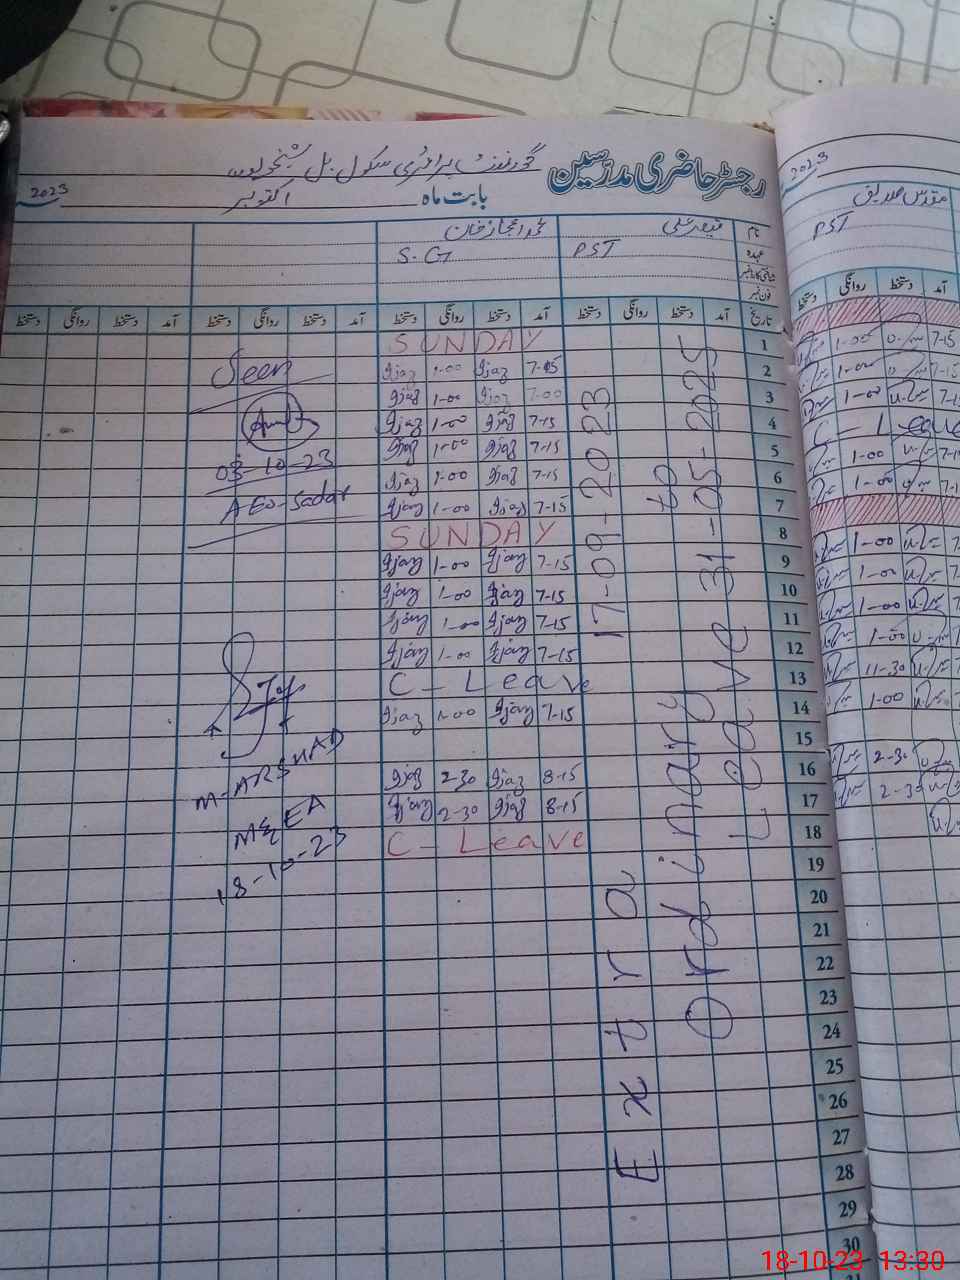 رجسٹر حاضری مدرسین
گورنمنٹ پرائمری سکول
بابت ماہ اکتوبر 2023
نام قیصر علی محمد اعجاز خان
عہدہ PST S.G
فون نمبر
تاریخ آمد دستخط روانگی دستخط آمد دستخط روانگی دستخط آمد دستخط روانگی دستخط آمد دستخط روانگی دستخط
1 SUNDAY
2 7-15 Ijaz 1-00 Ijaz
3 7-00 Ijaz 1-00 Ijaz
4 7-15 Ijaz 1-00 Ijaz
5 7-15 Ijaz 1-00 Ijaz
6 7-15 Ijaz 1-00 Ijaz
7 7-15 Ijaz 1-00 Ijaz
8 SUNDAY
9 7-15 Ijaz 1-00 Ijaz
10 7-15 Ijaz 1-00 Ijaz
11 7-15 Ijaz 1-00 Ijaz
12 7-15 Ijaz 1-00 Ijaz
13 C - Leave
14 7-15 Ijaz 1-00 Ijaz
15
16 8-15 Ijaz 2-30 Ijaz
17 8-15 Ijaz 2-30 Ijaz
18 C - Leave
19
20
21
22
23
24
25
26
27
28
29
30
Extra 17-09-2023
Ordinary to
Leave 31-05-2025
Seen
03-10-23
AEO-Sadar
M-ARSHAD
MEA
18-10-23
2023
مقدس صدیق
PST
آمد دستخط روانگی دستخط
7-15 1-00
7-15 1-00
1-00
C - Leave
1-00
1-00
1-00
1-00
1-00
1-00
11-30
1-00
2-30
2-30
18-10-23 13:30